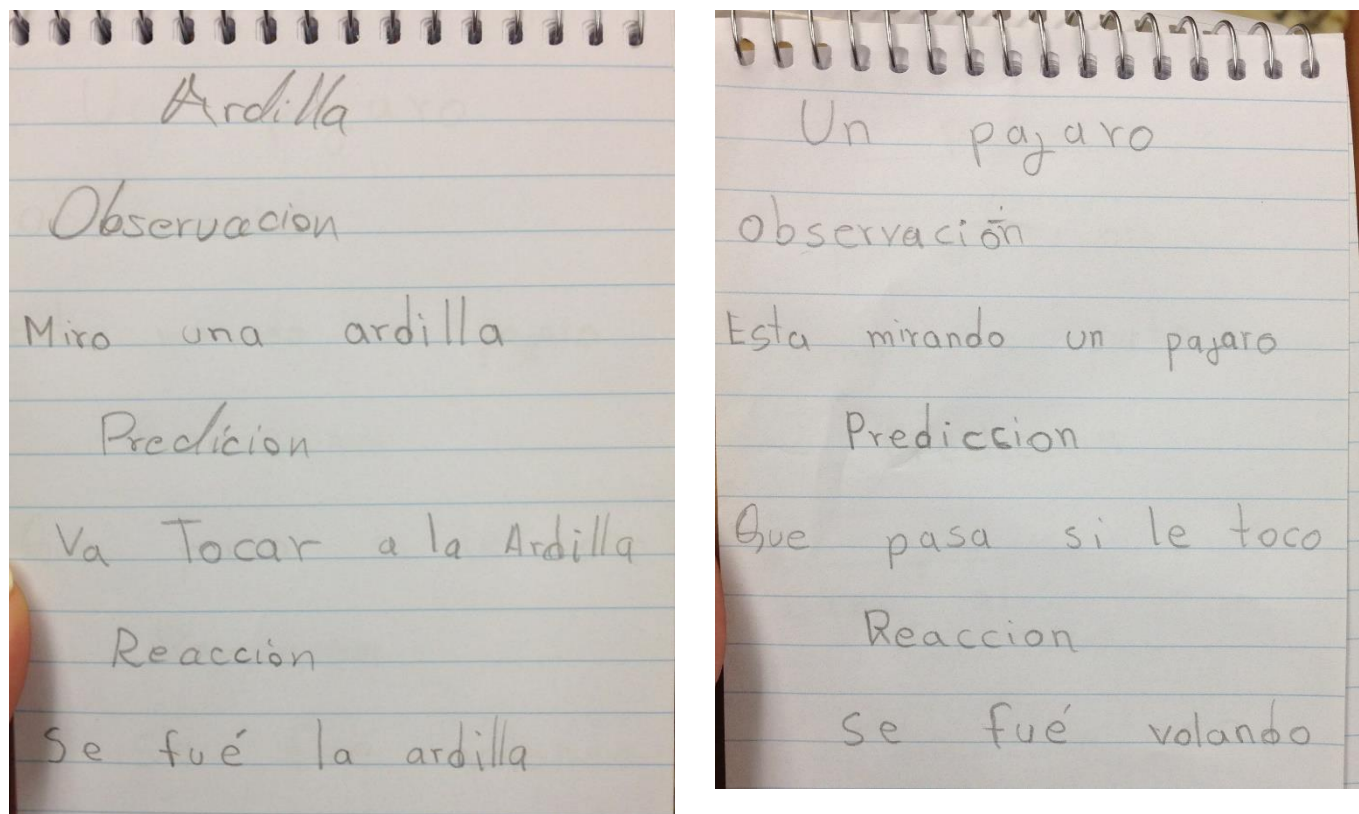 Ardilla
Observacion
Miro una ardilla
Predicion
Va Tocar a la Ardilla
Reacción
Se fué la ardilla
Un pajaro
Observación
Esta mirando un pajaro
Prediccion
Que pasa si le toco
Reaccion
Se fué volando